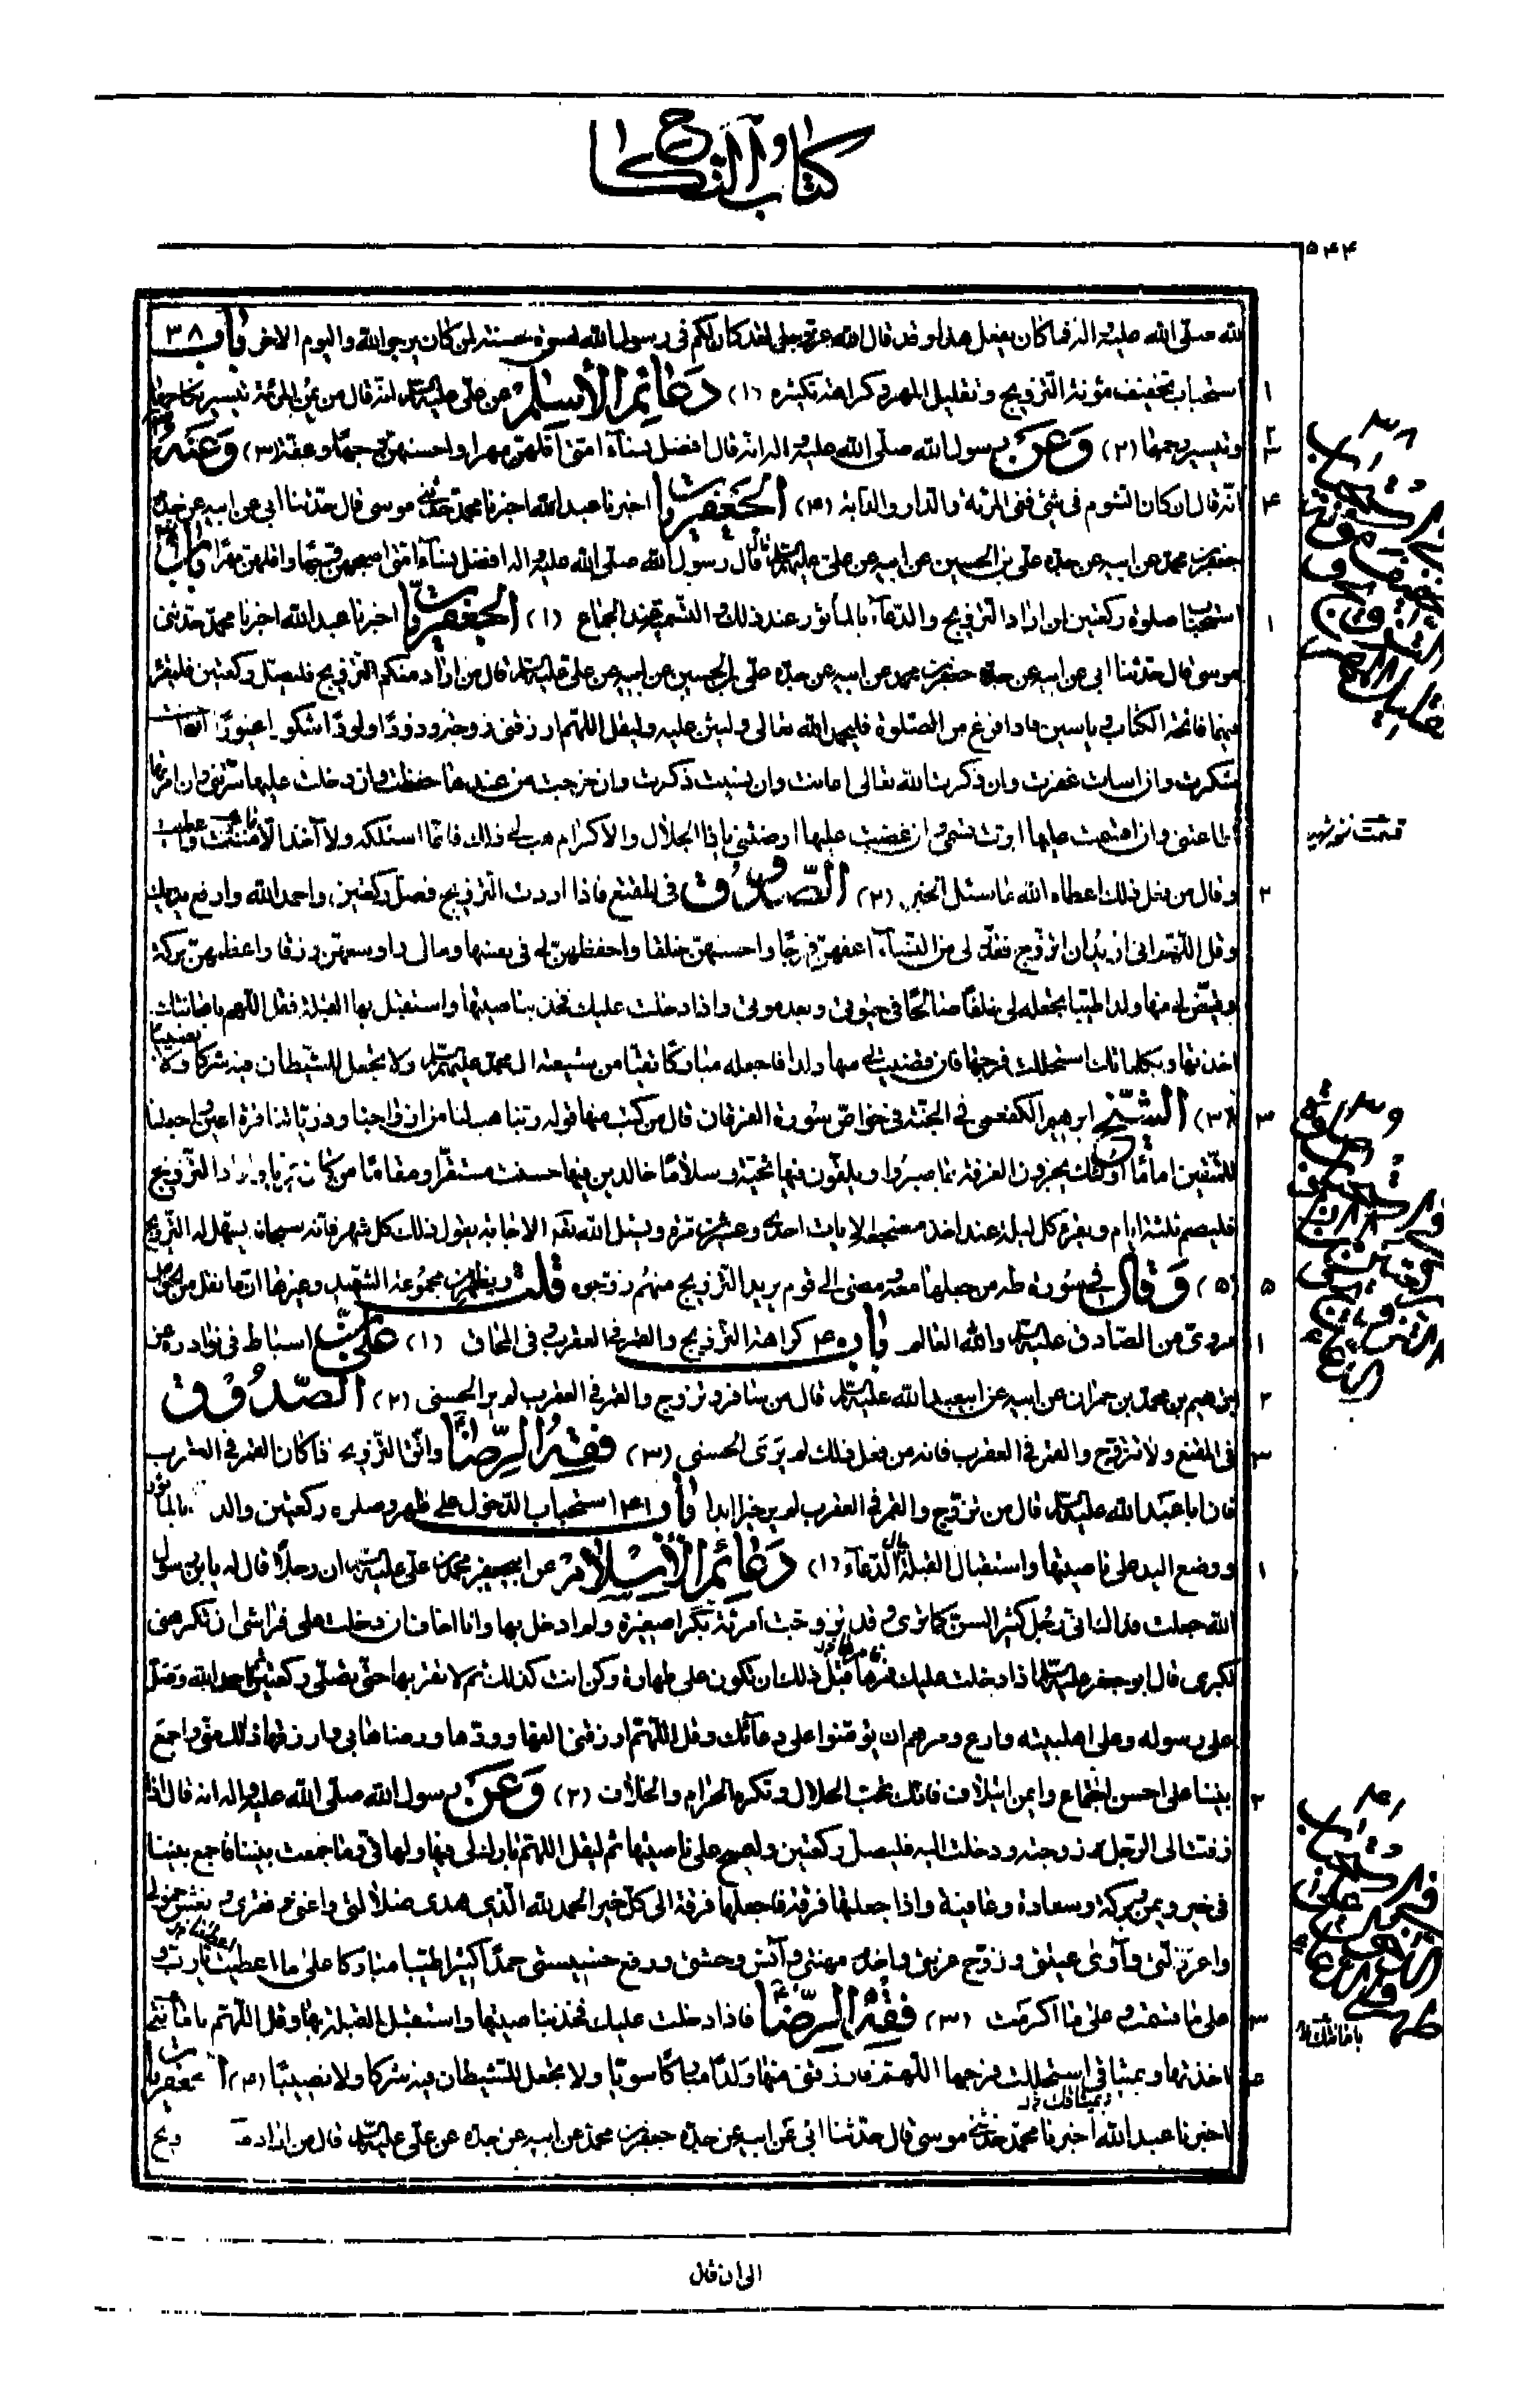 كتاب النكاح
٥٤٤
الله صلى الله عليه واله فما كان يفعل هذا وقد قال الله عزوجل لقد كان لكم فى رسول الله اسوة حسنة لمن كان يرجو الله واليوم الاخر باب ٣٨
١ استحباب تخفيف مؤنة التزويج وتقليل المهر وكراهة تكثيره (١) دعائم الأسلام عن على عليه السلام انه قال من يمن المرئة تيسير نكاحها
٢ وتيسير رحمها (٢) وعن رسول الله صلى الله عليه واله انه قال افضل نساء امتى اقلهن مهرا واحسنهن وجها وعفة (٣) وعنه
٤ انه قال ان كان الشوم فى شئ ففى المرئة والدار والدابة (٤) الجعفريات اخبرنا عبد الله اخبرنا محمد حدثنى موسى قال حدثنا ابى عن ابيه عن جده
جعفر بن محمد عن ابيه عن جده على بن الحسين عن ابيه عن على عليهم السلام قال قال رسول الله صلى الله عليه واله افضل نساء امتى اصبحهن وجها واقلهن مهرا باب ٣٩
١ استحباب صلوة ركعتين لمن اراد التزويج والدعاء بالمأثور عند ذلك والتسمية عند الجماع (١) الجعفريات اخبرنا عبد الله اخبرنا محمد حدثنى
موسى قال حدثنا ابى عن ابيه عن جده جعفر بن محمد عن ابيه عن جده على بن الحسين عن ابيه عن على عليه السلام قال من اراد منكم التزويج فليصل ركعتين فليقرء
فيهما فاتحة الكتاب ويس فاذا فرغ من الصلوة فليحمد الله تعالى وليثن عليه وليقل اللهم ارزقنى زوجة ودودا ولودا شكورا غيورا ان احسنت
شكرت وان اسات غفرت وان ذكرت الله تعالى اعانت وان نسيت ذكرت وان خرجت من عندها حفظت وان دخلت عليها سرتنى وان امرتها
اطاعتنى وان اقسمت عليها ابرت قسمى وان غضبت عليها ارضتنى ياذا الجلال والاكرام هب لى ذلك فانما اسئلكه ولا آخذ الا ما مننت واعطيت
٢ وقال من فعل ذلك اعطاه الله ما سئل الخبر (٢) الصدوق فى المقنع فاذا اردت التزويج فصل ركعتين واحمد الله وارفع يديك
وقل اللهم انى اريد ان اتزوج فقدر لى من النساء اعفهن فرجا واحسنهن خلقا واحفظهن لى فى نفسها ومالى واوسعهن رزقا واعظمهن بركة
وقيض لى منها ولدا طيبا تجعله لى خلفا صالحا فى حيوتى وبعد موتى واذا دخلت عليك فخذ بناصيتها واستقبل بها القبلة وقل اللهم بامانتك
اخذتها وبكلماتك استحللت فرجها فان قضيت لى منها ولدا فاجعله مباركا تقيا من شيعة ال محمد عليهم السلام ولا تجعل للشيطان فيه شركا ولا نصيبا
٣ (٣) الشيخ ابرهيم الكفعمى فى الجنة فى خواص سورة الفرقان قال من كتب منها قوله ربنا هب لنا من ازواجنا وذرياتنا قرة اعين واجعلنا
للمتقين اماما اولئك يجزون الغرفة بما صبروا ويلقون فيها تحية وسلاما خالدين فيها حسنت مستقرا ومقاما من كان عزبا واراد التزويج
فليصم ثلثة ايام ويقرء كل ليلة عند اخذ مضجعه الايات احدى وعشرين مرة ويسئل الله تعالى الاجابة يفعل ذلك كل شهر فانه سبحانه يسهل له التزويج
٥ (٥) وقال فى سورة طه من جعلها معه ومضى الى قوم يريد التزويج منهم زوجوه قلت ويظهر من مجموعة الشهيد وغيرها ان ما نقل من الخواص
١ مروى عن الصادق عليه السلام والله العالم باب ٤٠ كراهة التزويج والقمر فى العقرب وفى المحاق (١) على بن اسباط فى نوادره عن
٢ ابراهيم بن محمد بن حمران عن ابيه عن ابى عبد الله عليه السلام قال من سافر وتزوج والقمر فى العقرب لم ير الحسنى (٢) الصدوق
٣ فى المقنع ولا تتزوج والقمر فى العقرب فانه من فعل ذلك لم ير الحسنى (٣) فقه الرضا واتق التزويج اذا كان القمر فى العقرب
فان ابا عبد الله عليه السلام قال من تزوج والقمر فى العقرب لم ير خيرا ابدا باب ٤١ استحباب الدخول على طهر وصلوة ركعتين والدعاء بالماثور
١ ووضع اليد على ناصيتها واستقبال القبلة حال الدعاء (١) دعائم الأسلام عن ابى جعفر محمد بن على عليه السلام ان رجلا قال له يابن رسول
الله جعلت فداك انى رجل كثير السن كما ترى وقد تزوجت امرئة بكرا صغيرة ولم ادخل بها وانا اخاف ان دخلت على فراشى ان تكرهنى
لكبرى قال ابو جعفر عليه السلام اذا دخلت عليك فمرها قبل ذلك ان تكون على طهارة وكن انت كذلك ثم لا تقربها حتى تصلى ركعتين ثم احمد الله وصل
على رسوله وعلى اهل بيته وادع ومرهم ان يؤمنوا على دعائك وقل اللهم ارزقنى الفها وودها ورضاها بى وارزقها ذلك منى واجمع
٢ بيننا على احسن اجتماع وايمن ائتلاف فانك تحب الحلال وتكره الحرام والخلاف (٢) وعن رسول الله صلى الله عليه واله انه قال اذا
زفت الى الرجل زوجته ودخلت اليه فليصل ركعتين وليمسح على ناصيتها ثم ليقل اللهم بارك لى فيها ولها فى وما جمعت بيننا فاجمع بيننا
فى خير ويمن وبركة وسعادة وعافية واذا جعلتها فرقة فاجعلها فرقة الى كل خير الحمد لله الذى هدى ضلالتى واغنى فقرى ونعش خمولى
واعز ذلتى وآوى عيلتى وزوج عزبتى واخدم مهنتى وآنس وحشتى ورفع خسيستى حمدا كثيرا طيبا مباركا على ما اعطيت يا رب و
٣ على ما قسمت وعلى ما اكرمت (٣) فقه الرضا فاذا دخلت عليك فخذ بناصيتها واستقبل القبلة بها وقل اللهم بامانتى
٤ اخذتها وبميثاقى استحللت فرجها اللهم فارزقنى منها ولدا مباركا سويا ولا تجعل للشيطان فيه شركا ولا نصيبا (٤) الجعفريات
وبميثاقك
اخبرنا عبد الله اخبرنا محمد حدثنى موسى قال حدثنا ابى عن ابيه عن جده جعفر بن محمد عن ابيه عن جده عن على عليه السلام قال من اراد
٣٨
باب
٣٩
٤١
باب
بامانتك
الى ان قال